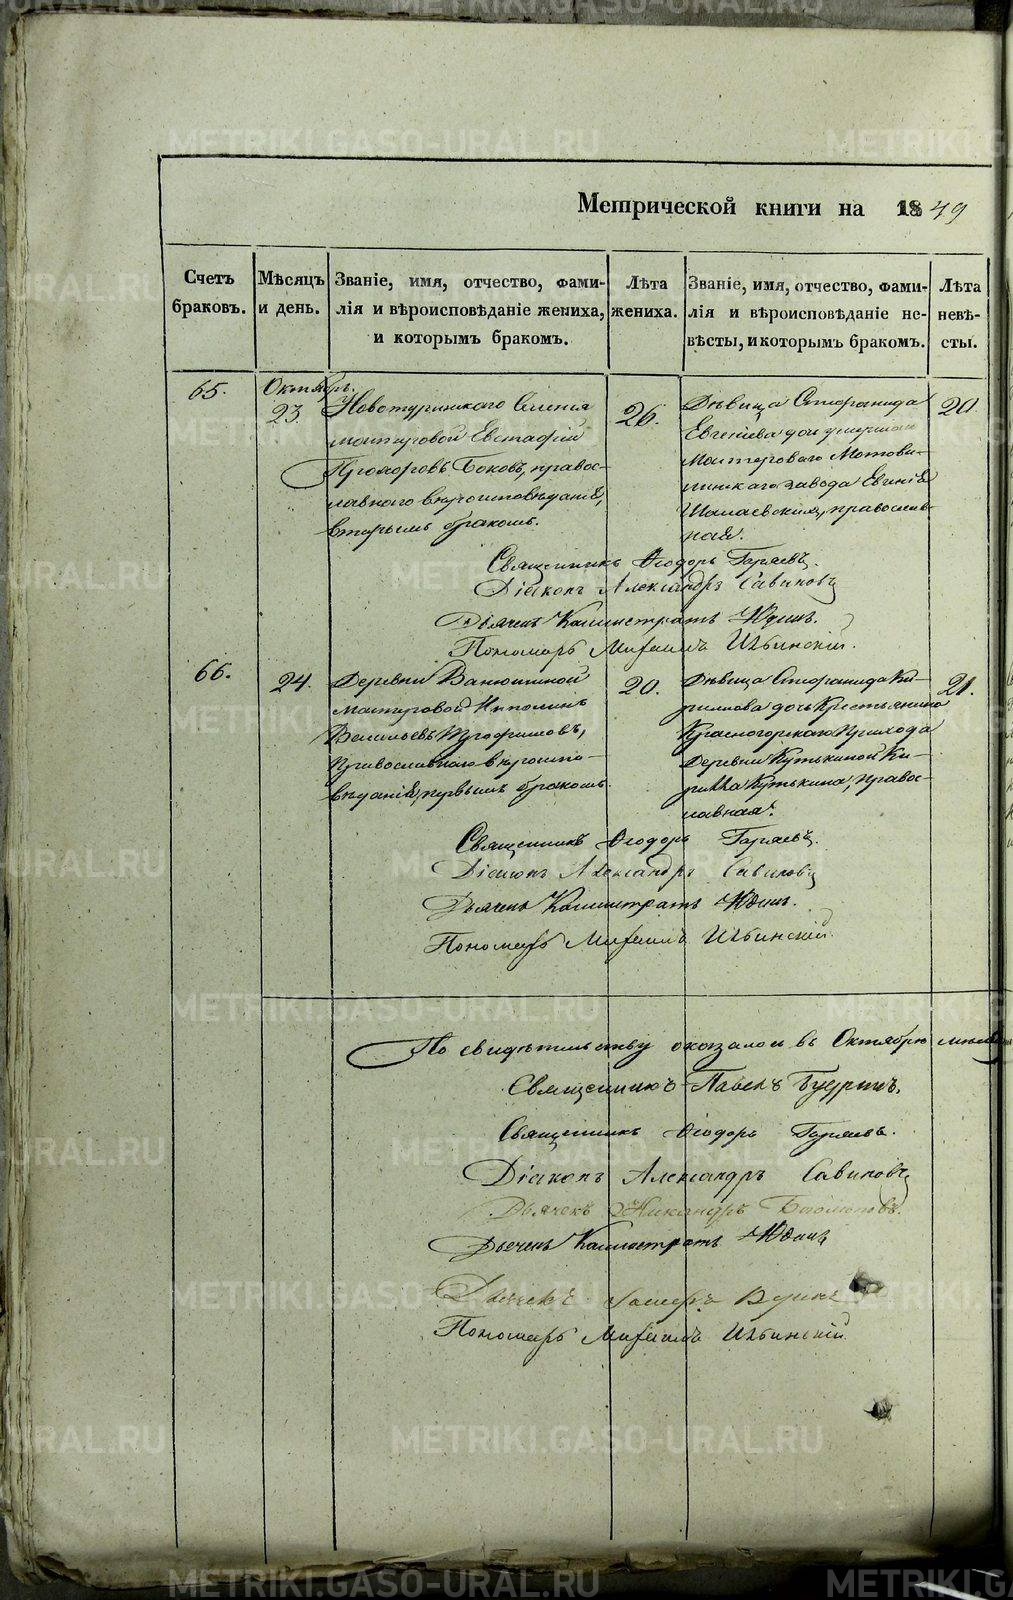 Метрической книги на 1849
Счетъ браковъ.
Мѣсяцъ и день.
Званіе, имя, отчество, фами-
лія и вѣроисповѣданіе жениха,
и которымъ бракомъ.
Лѣта жениха.
Званіе, имя, отчество, фами-
лія и вѣроисповѣданіе не-
вѣсты, и которымъ бракомъ.
Лѣта
невѣ-
сты.
65.
Октябрь.
23.
Новотуринскаго Селенія
мастеровой Евстафій
Прохоровъ Боковъ, правос-
лавнаго вѣроисповѣданія,
вторымъ бракомъ.
26.
Дѣвица Стефанида
Евгеніева дочь умершаго
Мастероваго Мотови-
лихскаго завода Евгенія
православ-
ная.
20.
Священникъ Ѳеодоръ Гаряевъ.
Діаконъ Александръ Савиновъ
Дьячекъ Каллистратъ Юдинъ.
Пономарь Михаилъ Ильинскій.
66.
24.
Деревни Ванюшиной
мастеровой Ипполитъ
Васильевъ Трофимовъ,
Православнаго вѣроиспо-
вѣданія, первымъ бракомъ.
20.
Дѣвица Стефанида Ки-
рилова дочь Крестьянина
Красногорскаго Прихода
Деревни Кутькиной Ки-
рилла Кутькина, правос-
лавная.
21.
Священникъ Ѳеодоръ Гаряевъ.
Діаконъ Александръ Савиновъ
Дьячекъ Каллистратъ Юдинъ.
Пономарь Михаилъ Ильинскій.
По свидѣтельству оказалось въ Октябрѣ
Священникъ Павелъ
Священникъ Ѳеодоръ Гаряевъ.
Діаконъ Александръ Савиновъ
Дьячекъ Никандръ
Дьячекъ Каллистратъ Юдинъ
Дьячекъ
Пономарь Михаилъ Ильинскій.
METRIKI.GASO-URAL.RU